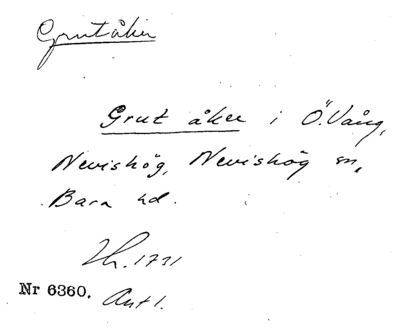 Grutåker
Grut åker i Ö. Vång,
Nevishög, Nevishög sn,
Bara hd.
Lh. 1731
Nr 6360. Ant 1.